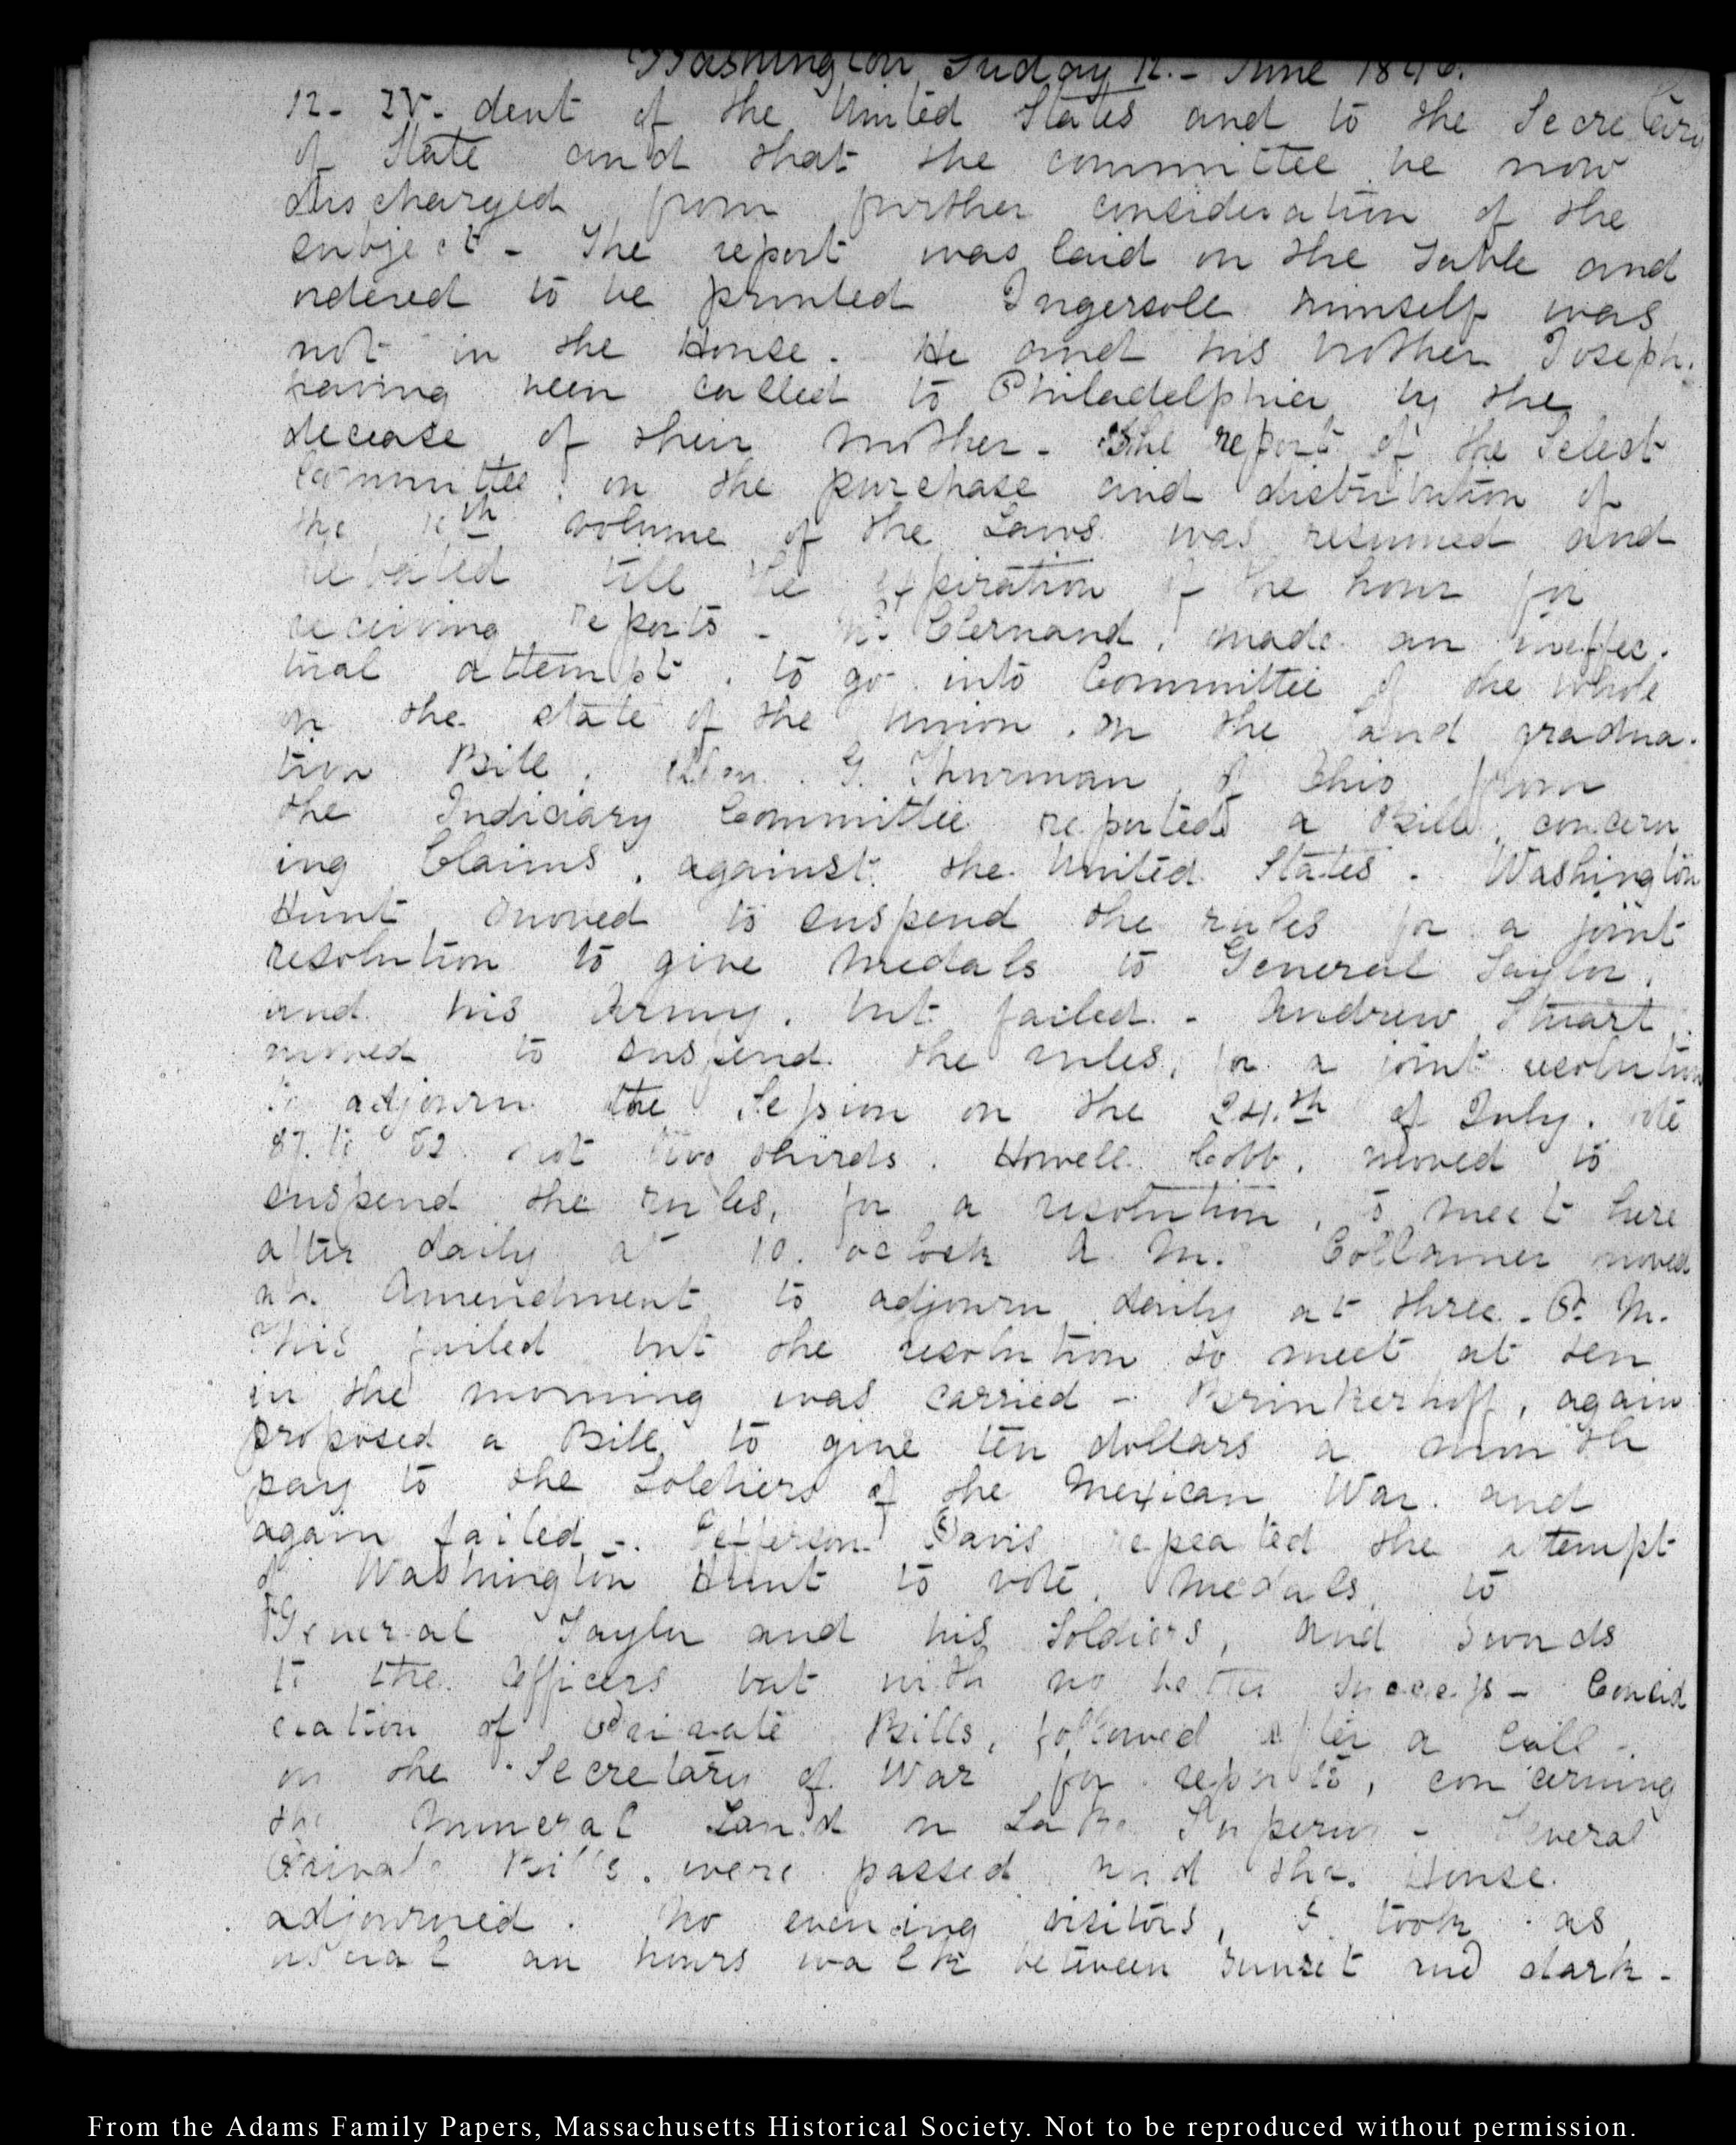 Washington Friday 12.- June 1846.
12- IV- dent of the United States and to the Secretary
of State and that the committee be now
discharged from further consideration of the
subject - The report was laid on the table and
ordered to be printed Ingersoll himself was
not in the House. He and his brother Joseph.
having been called to Philadelphia by the
decease of their mother - The report of the Select
Committee, on the purchase and distribution of
the 10th volume of the Laws was resumed and
debated till the expiration of the hour for
receiving reports - Mc.Clernand, made an ineffec.
tual attempt, to go into Committee of the whole
on the state of the union, on the land gradua.
tion Bill, G. Thurman of Ohio from
the Judiciary Committee reported a Bill, concern
ing Claims, against the United States. Washington
Hunt moved to suspend the rules for a joint
resolution to give medals to General Taylor,
and his Army, but failed - Andrew Stuart,
moved to suspend the rules, for a joint resolution
to adjourn the Session on the 24.th of July. vote
87. to 62 not two thirds. Howell Cobb, moved to
suspend the rules, for a resolution, to meet here
after daily at 10. oclock A. M. Collamer moved
an Amendment to adjourn daily at three. P. M.
This failed but the resolution to meet at ten
in the morning was carried - Brinkerhoff, again
proposed a Bill to give ten dollars a month
pay to the Soldiers of the Mexican War. and
again failed -. Jefferson Davis repeated the attempt
of Washington Hunt to vote, medals, to
General Taylor and his Soldiers, and Swords
to the Officers but with no better success - Consid
eration of Private Bills, followed after a Call -
on the Secretary of War for reports, concerning
the mineral Land on Lake Superior - Several
Private Bills, were passed and the House.
adjourned. No evening visitors, I took as
usual an hours walk between sunset and dark -
From the Adams Family Papers, Massachusetts Historical Society. Not to be reproduced without permission.